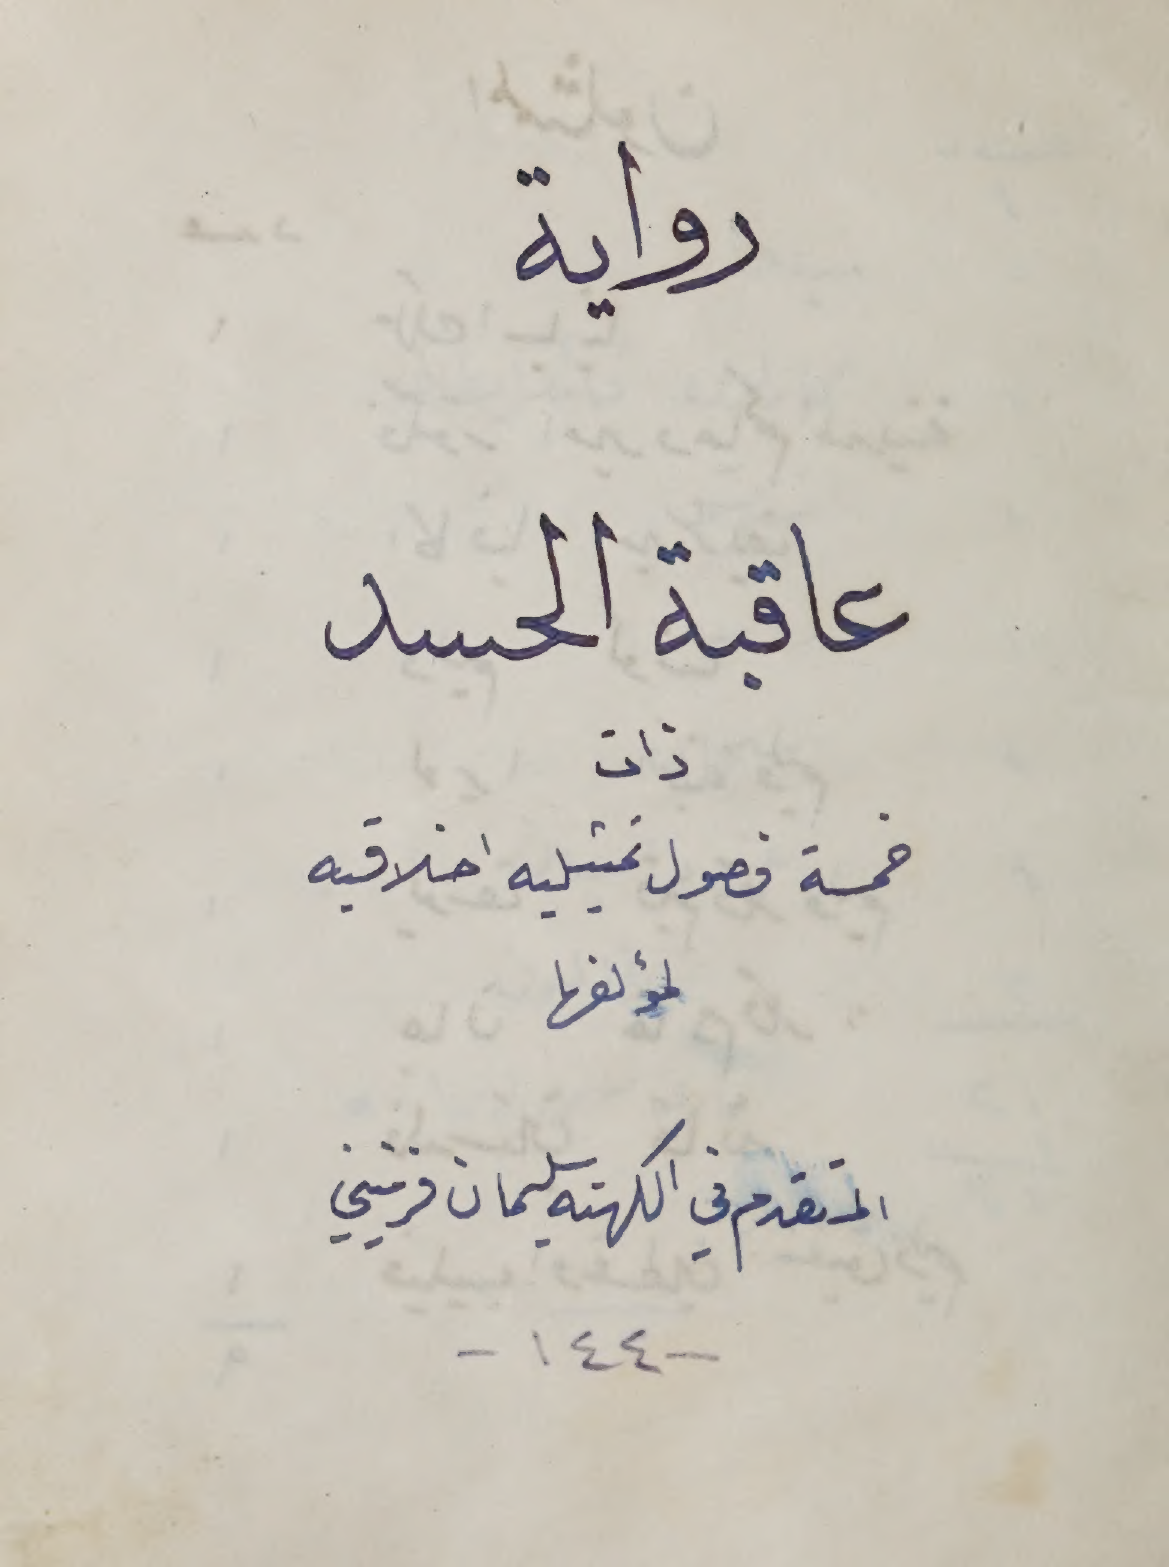 رواية
عاقبة الحسد
ذات
خمسة فصول تمثيليه اخلاقيه
لمؤلفها
المتقدم في الكهنه سليمان فرنيني
- ١٤٤ -